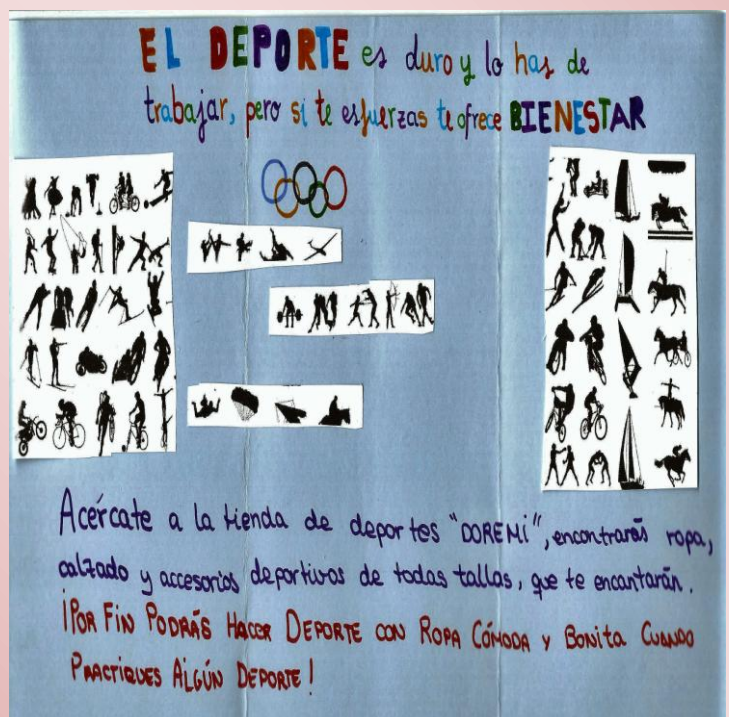 EL DEPORTE es duro y lo has de
trabajar, pero si te esfuerzas te ofrece BIENESTAR
Acércate a la tienda de deportes "DOREMI", encontrarás ropa,
calzado y accesorios deportivos de todas tallas, que te encantarán.
¡POR FIN PODRÁS HACER DEPORTE CON ROPA CÓMODA Y BONITA CUANDO
PRACTIQUES ALGÚN DEPORTE!